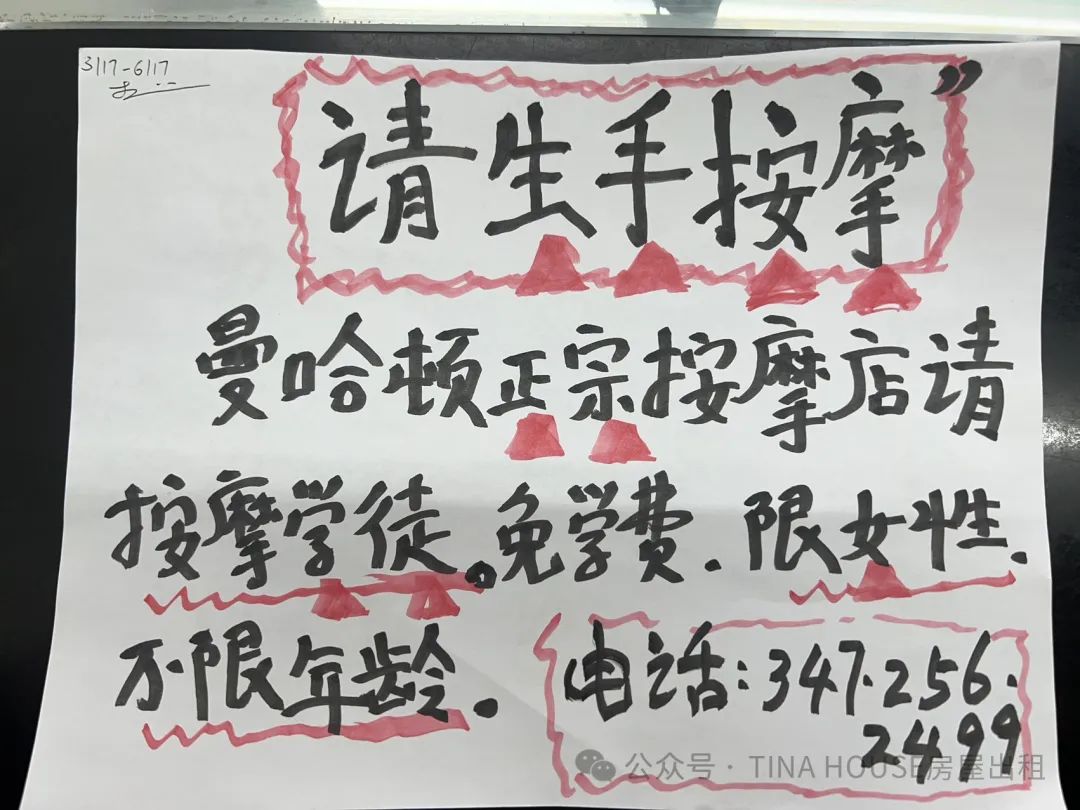 3/17-6/17
请生手按摩”
曼哈顿正宗按摩店请
按摩学徒。免学费.限女性.
不限年龄.
电话:347.256.
2499
公众号·TINA HOUSE房屋出租